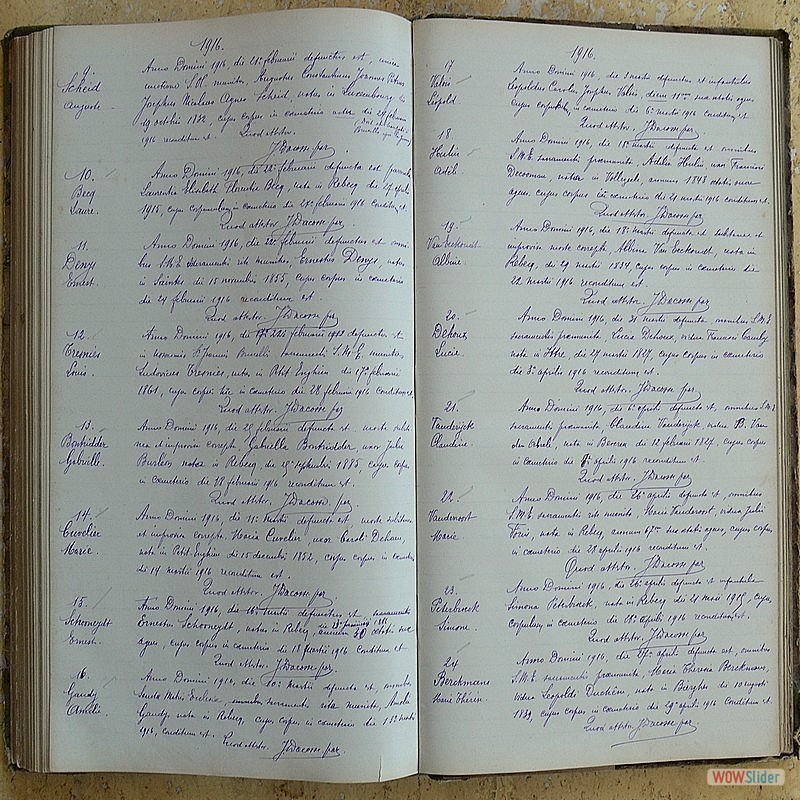 1916.
9.
Scheid
Auguste
Anno Domini 1916, die 21a februarii defunctus est,
S.M. munitus, Augustus Constantinus Joannes Petrus
Josephus Nicolaus Scheid, natus in Luxembourg die
29 octobris 1832, cujus corpus in cœmeterio
1916 reconditum est. Quod attestor.
J Dacosse par.
10.
Becq
Laure.
Anno Domini 1916, die 22a februarii defuncta est parvula
Laurentia Elisabeth Florentia Becq, nata in Rebecq die 27 aprilis
1915, cujus corpusculum in cœmeterio die 24a februarii 1916 conditum est
Quod attestor. J Dacosse par.
11.
Denys
Ernest.
Anno Domini 1916, die februarii defunctus est omni-
bus S.M.E. sacramentis rite munitus, Ernestus Denys, natus
in Saintes die 15 novembris 1855, cujus corpus in cœmeterio
die 24 februarii 1916 reconditum est.
Quod attestor. J Dacosse par
12.
Cresniès
Louis.
Anno Domini 1916, die februarii defunctus est
in sacramentis S.M.E. munitus,
Ludovicus Cresniès, natus in Petit Enghien die 17a februarii
1861, cujus corpus in cœmeterio die 28 februarii 1916 conditum est.
Quod attestor. J Dacosse par
13.
Bontridder
Gabrielle.
Anno Domini 1916, die 28 februarii defuncta est morte subita-
nea et improvisa correpta Gabriella Bontridder, uxor Julii
nata in Rebecq die septembris 1885, cujus corpus
in cœmeterio die 28 februarii 1916 reconditum est.
Quod attestor. J Dacosse par.
14.
Cuvelier
Marie.
Anno Domini 1916, die 11a martii defuncta est, morte subitanea
et improvisa correpta Maria Cuvelier uxor Caroli Deham,
nata in Petit Enghien die 15 decembris 1852, cujus corpus in cœmeterio
die 14 martii 1916 reconditum est.
Quod attestor. J Dacosse par.
15.
Schoneydt
Ernest.
Anno Domini 1916, die 16a martii defunctus est, sacramentis
Ernestus Schooneydt, natus in Rebecq, ætatis suæ
agens, cujus corpus in cœmeterio die 18 martii 1916 conditum est
Quod attestor. J Dacosse par.
16.
Gaudy
Amélie.
Anno Domini 1916, die martii defuncta est, omnibus
Sanctæ Matris Ecclesiæ, sacramentis rite munita, Amelia
Gaudy, nata in Rebecq, cujus corpus in cœmeterio die martii
1916, conditum est. Quod attestor. J Dacosse par.
1916.
17
Valois
Léopold.
Anno Domini 1916, die 5 martii defunctus est infantulus
Leopoldus Carolus Josephus Valois, diem 11um suæ ætatis agens
cujus corpusculum, in cœmeterio die 6a martii 1916 conditum est
Quod attestor. J Dacosse par.
18
Houlin
Adèle.
Anno Domini 1916, die 18a martii defuncta est omnibus
S.M.E. sacramentis præmunita, Adelia Houlin uxor Francisci
nata in Vollezeele, annum 1843 ætatis suæ
agens cujus corpus in cœmeterio die 21 martii 1916 conditum est.
Quod attestor. J Dacosse par.
19.
Van Eeckoudt
Albine.
Anno Domini 1916, die 18a martii defuncta est subitanea et
improvisa morte correpta, Albina Van Eeckoudt, nata in
Rebecq, die 29 martii 1854, cujus corpus in cœmeterio die
22 martii 1916 reconditum est.
Quod attestor. J Dacosse par
20.
Dehoux
Lucie.
Anno Domini 1916, die 31 martii defuncta, omnibus S.M.E.
sacramentis præmunita, Lucia Dehoux, vidua Francisci
nata in Isbre, die 27 martii 1827, cujus corpus in cœmeterio
die 3a aprilis 1916 reconditum est.
Quod attestor. J Dacosse par.
21.
Vanderijck
Claudine.
Anno Domini 1916, die 6a aprilis defuncta est, omnibus S.M.E
sacramentis præmunita, Claudina Vanderijck, vidua B. Van
nata in die 12 februarii 1827, cujus corpus
in cœmeterio die 8a aprilis 1916 reconditum est.
Quod attestor. J Dacosse par
22.
Vandervoort
Marie.
Anno Domini 1916, die 26a aprilis defuncta est, omnibus
S.M.E. sacramentis rite munita, Maria Vandervoort, vidua Julii
nata in Rebecq, annum 67um suæ ætatis agens, cujus corpus
in cœmeterio die 28 aprilis 1916 reconditum est.
Quod attestor. J Dacosse par
23.
Péterbrock
Simone.
Anno Domini 1916, die 26a aprilis defuncta est infantula
Simona Péterbrock, nata in Rebecq die 21 maii 1915, cujus
corpusculum in cœmeterio die 28a aprilis 1916 reconditum est.
Quod attestor. J Dacosse par
24
Berckmans
Marie Thérèse.
Anno Domini 1916, die 27a aprilis defuncta est, omnibus
S.M.E. sacramentis præmunita, Maria Theresia Berckmans,
vidua Leopoldi Duchêne, nata in Burght die 10 augusti
1839, cujus corpus in cœmeterio die 29a aprilis 1916 conditum est.
Quod attestor. J Dacosse par.
WOWSlider